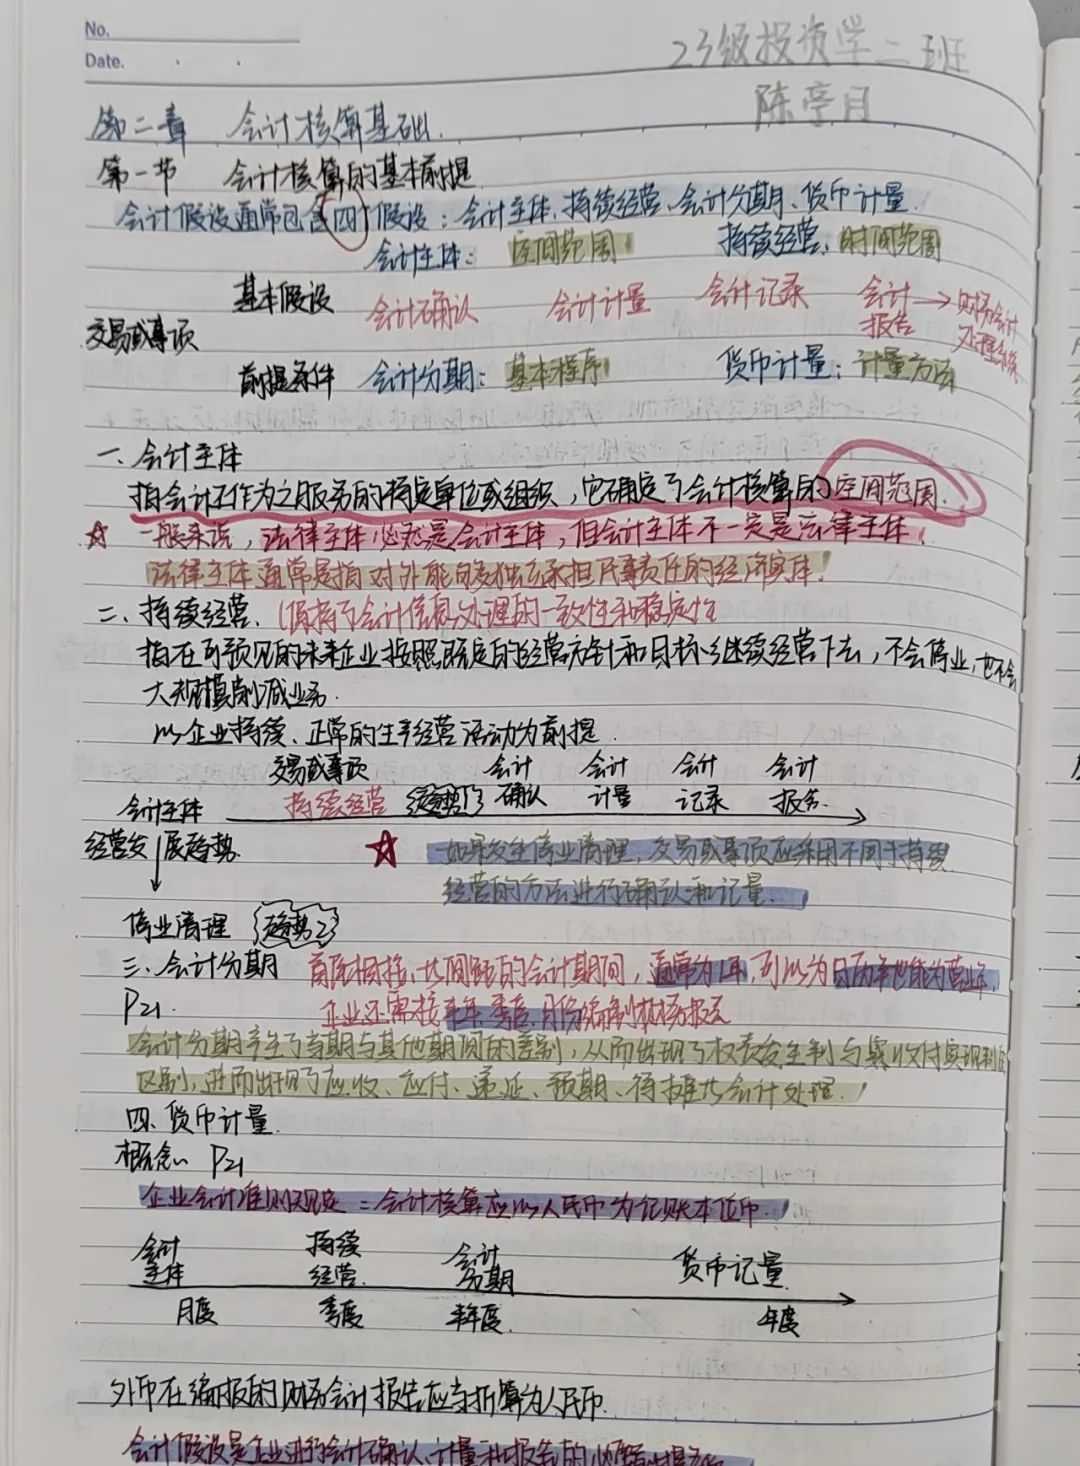 No.
Date.
23级投资学二班
陈亭月
第二章 会计核算基础.
第一节 会计核算的基本前提
会计假设通常包含四个假设：会计主体、持续经营、会计分期、货币计量.
会计主体： 空间范围 持续经营：时间范围
基本假设 会计确认 会计计量 会计记录 会计报告 → 财务会计处理系统
交易或事项
前提条件 会计分期：基本程序 货币计量：计量方法
一、会计主体
指会计工作为之服务的特定单位或组织，它确定了会计核算的空间范围.
☆ 一般来说，法律主体必然是会计主体，但会计主体不一定是法律主体！
法律主体通常是指对外能够独立承担民事责任的经济实体！
二、持续经营.（保持了会计信息处理的一致性和稳定性
指在可预见的未来企业按照既定的经营方针和目标继续经营下去，不会停业，也不会
大规模削减业务.
以企业持续、正常的生产经营活动为前提.
交易或事项 会计 会计 会计 会计
会计主体 持续经营 趋势1 确认 计量 记录 报告.
经营发展趋势 ☆ 如果发生停业清理，交易或事项应采用不同于持续
经营的方法进行确认和记量.
停业清理 趋势2
三、会计分期 首尾相接、 间 的会计期间，通常为1年，可以为日历年也能为营业年,
P21. 企业还需按半年、季度、月份编制财务报告
会计分期产生了当期与其他期间的差别，从而出现了权责发生制与收付实现制
区别，进而出现了应收、应付、递延、预期、待摊等会计处理！
四、货币计量.
概念 P21
企业会计准则规定：会计核算应以人民币为记账本位币！
会计 持续 会计 货币记量
主体 经营. 分期
月度 季度 半年度. 年度
外币在编报的财务会计报告应当折算为人民币.
会计假设是企业进行会计确认、计量和报告的